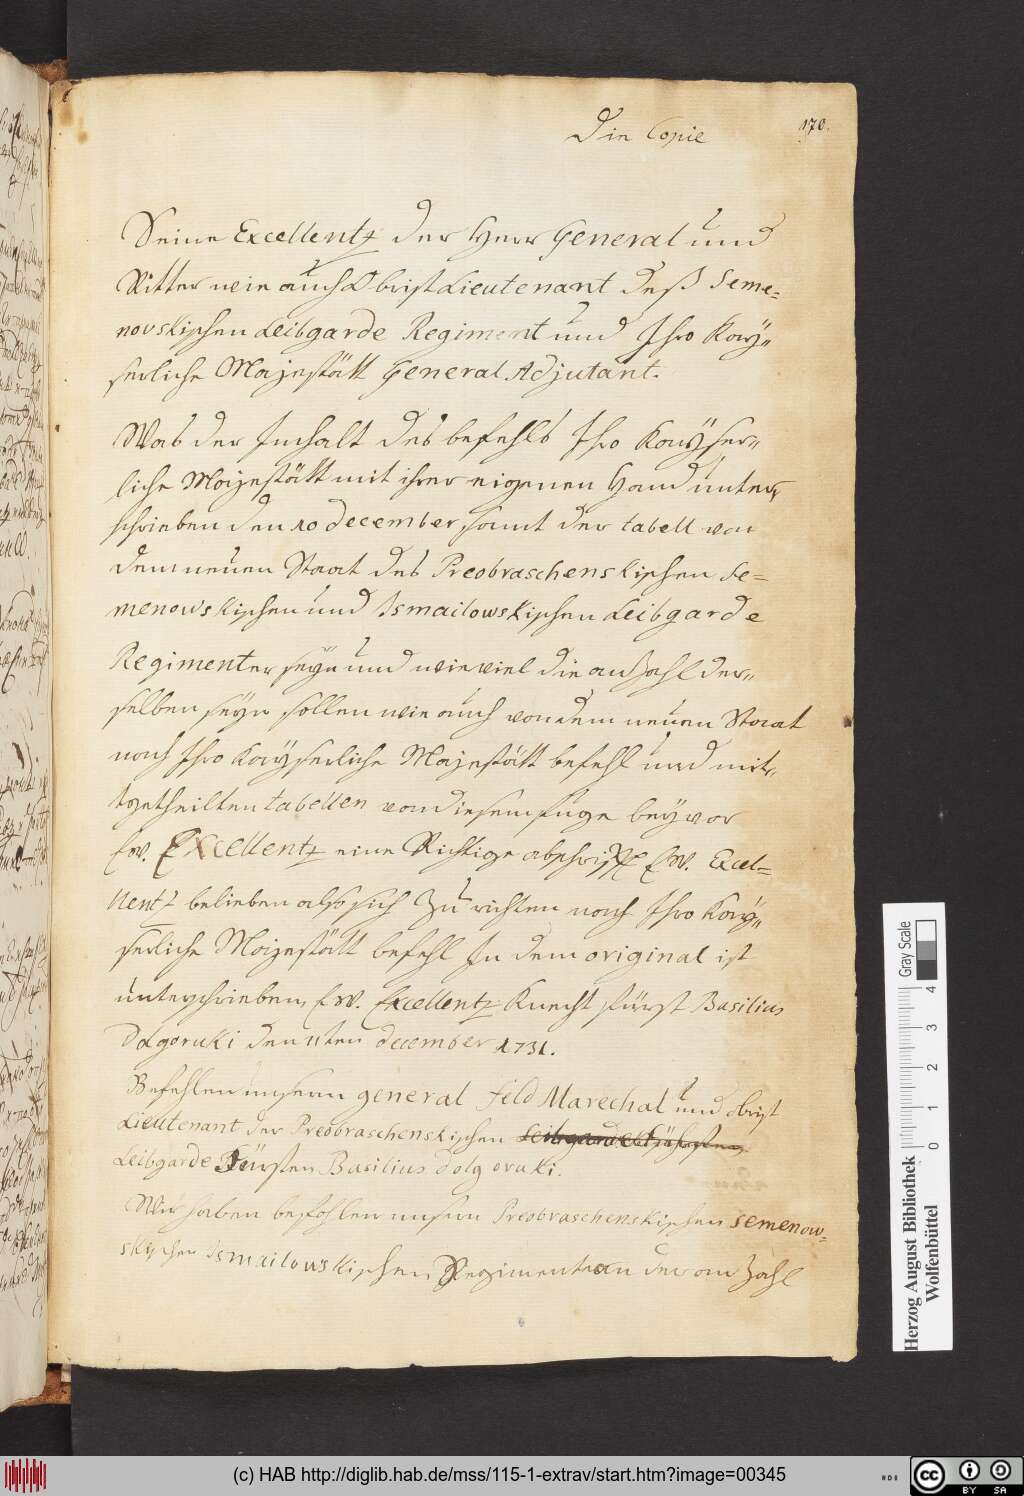 Die Copie
170.
Seine Excellentz der Herr General und
Ritter wie auch Obrist Lieutenant deß Seme=
novskischen Leibgarde Regiment und Ihro Kaÿ„
serliche Majestätt General Adjutant.
Was der Inhalt des befehls Ihro Kaÿser„
liche Majestätt mit ihrer eigenen Hand unter„
schrieben den 10 december, samt der tabell von
dem neuen Staat des Preobraschenskischen Se=
menowskischen und Ismailowskischen Leibgarde
Regimenter seyn und wie viel die anzahl der„
selben seyn sollen wie auch von dem neuen Staat
nach Ihro Kaÿserliche Majestätt befehl und mit„
getheilten tabellen von diesem füge beÿ vor
Ew. Excellentz eine Richtige abschrifft Ew. Excel=
lentz belieben also sich zu richten nach Ihro Kaÿ„
serliche Majestätt befehl In dem original ist
unterschrieben, Ew. Excellentz Knecht Fürst Basilius
Dolgoruki den 11ten december 1731.
Befehlen unsern general Feld Marechal und obrist
Lieutenant der Preobraschenskischen
Leibgarde Fürsten Basilius Dolgoruki.
Wir haben befohlen unsern Preobraschenskischen Semenow=
skischen Ismailowskischen Regimentern der anzahl
Gray Scale
0 1 2 3 4
Herzog August Bibliothek
Wolfenbüttel
(c) HAB http://diglib.hab.de/mss/115-1-extrav/start.htm?image=00345
cc BY SA